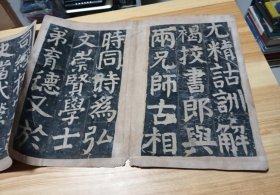 尤精詁訓解
褐挍書郎與
兩兄師古相
時同時為弘
文崇賢學士
弟育德又於
史當代